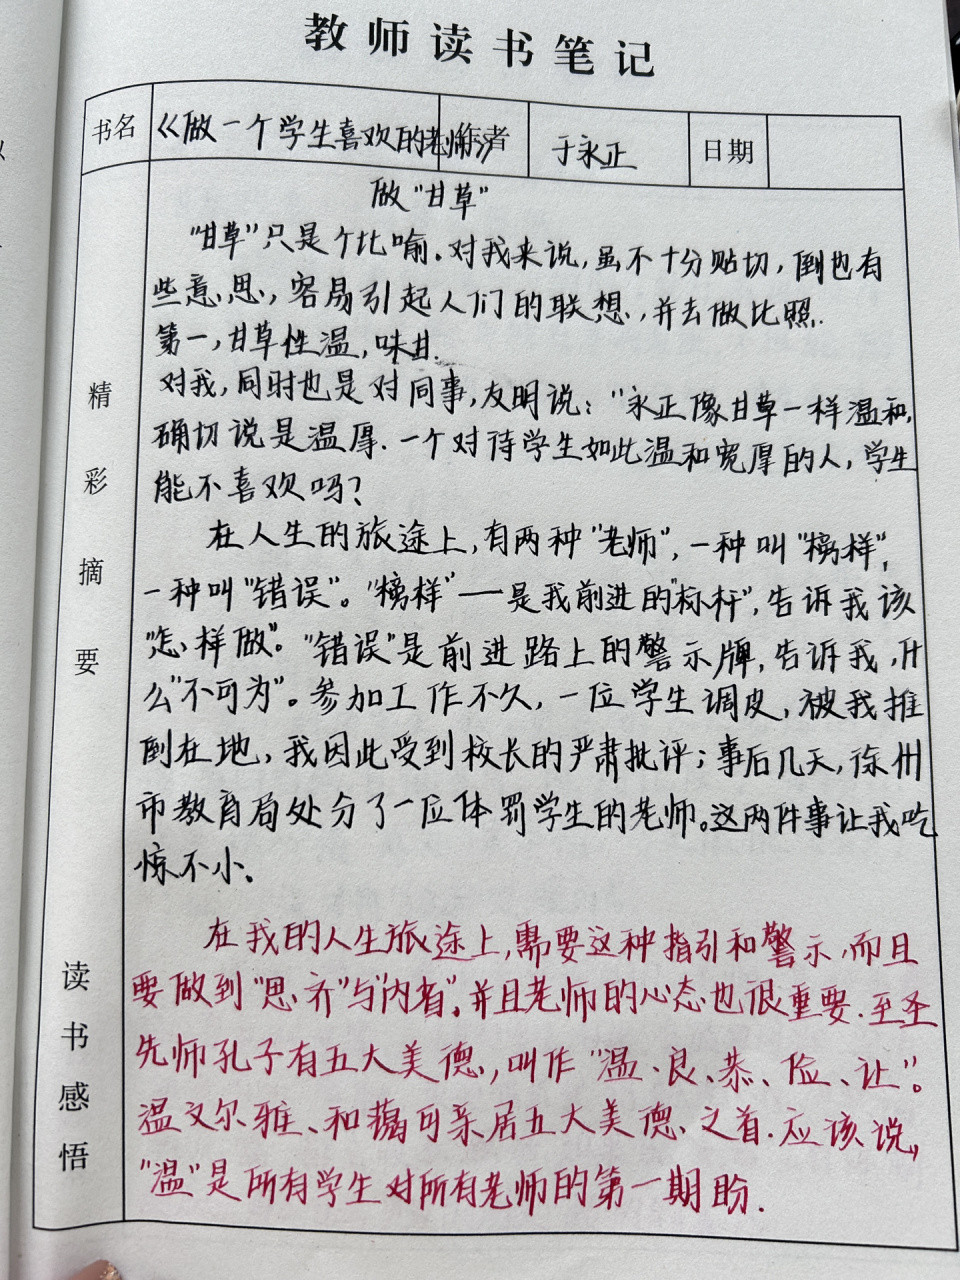 教师读书笔记
书名 《做一个学生喜欢的老师》 作者 于永正 日期
做"甘草"
"甘草"只是个比喻.对我来说,虽不十分贴切,倒也有
些意思,容易引起人们的联想,并去做比照.
第一,甘草性温,味甘.
对我,同时也是对同事,友明说:"永正像甘草一样温和,
确切说是温厚.一个对待学生如此温和宽厚的人,学生
能不喜欢吗?
在人生的旅途上,有两种"老师",一种叫"榜样",
一种叫"错误"。"榜样"——是我前进的"标杆",告诉我该
"怎样做"。"错误"是前进路上的警示牌,告诉我,什
么"不可为"。参加工作不久,一位学生调皮,被我推
倒在地,我因此受到校长的严肃批评;事后几天,徐州
市教育局处分了一位体罚学生的老师。这两件事让我吃
惊不小.
在我的人生旅途上,需要这种指引和警示,而且
要做到"思齐"与"内省"。并且老师的心态也很重要.至圣
先师孔子有五大美德,叫作"温、良、恭、俭、让"。
温文尔雅、和蔼可亲居五大美德之首.应该说,
"温"是所有学生对所有老师的第一期盼.
精彩摘要
读书感悟